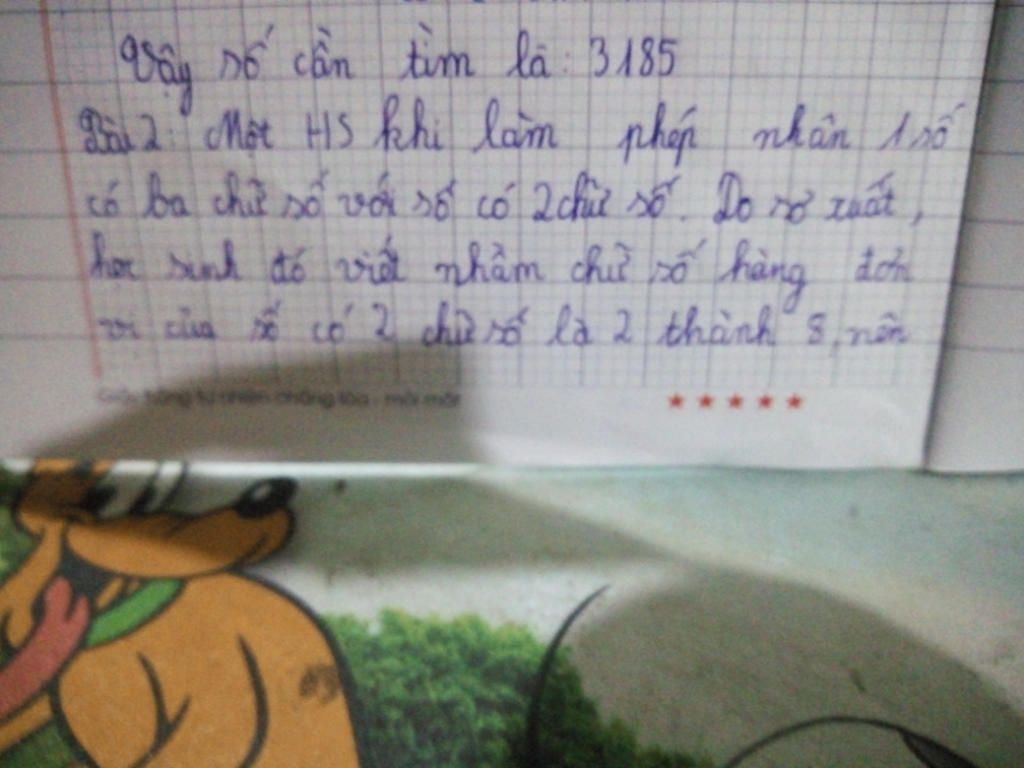 Vậy số cần tìm là: 3185
Bài 2: Một HS khi làm phép nhân 1 số
có ba chữ số với số có 2 chữ số. Do sơ xuất,
học sinh đó viết nhầm chữ số hàng đơn
vị của số có 2 chữ số là 2 thành 8, nên
★★★★★